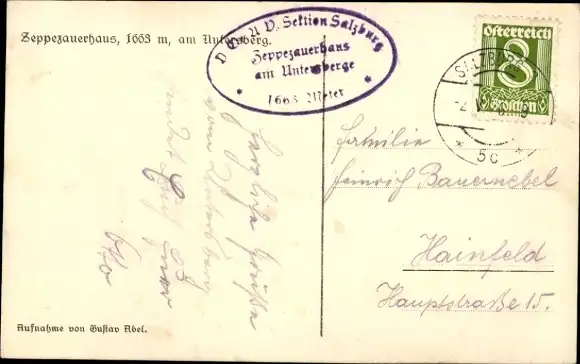 Zeppezauerhaus, 1663 m, am Untersberg.
D. Ö. A. V. Sektion Salzburg
Zeppezauerhaus
am Untersberge
* 1663 Meter *
Österreich
8
Groschen
SALZBURG
* 5c *
Herzliche Grüße
vom Untersberg
Otto
Familie
Heinrich Bauernebel
Hainfeld
Hauptstraße 15.
Aufnahme von Gustav Abel.